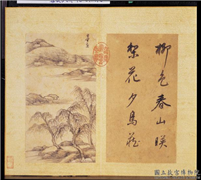 柳色春山映
梨花夕鳥藏
國立故宮博物院